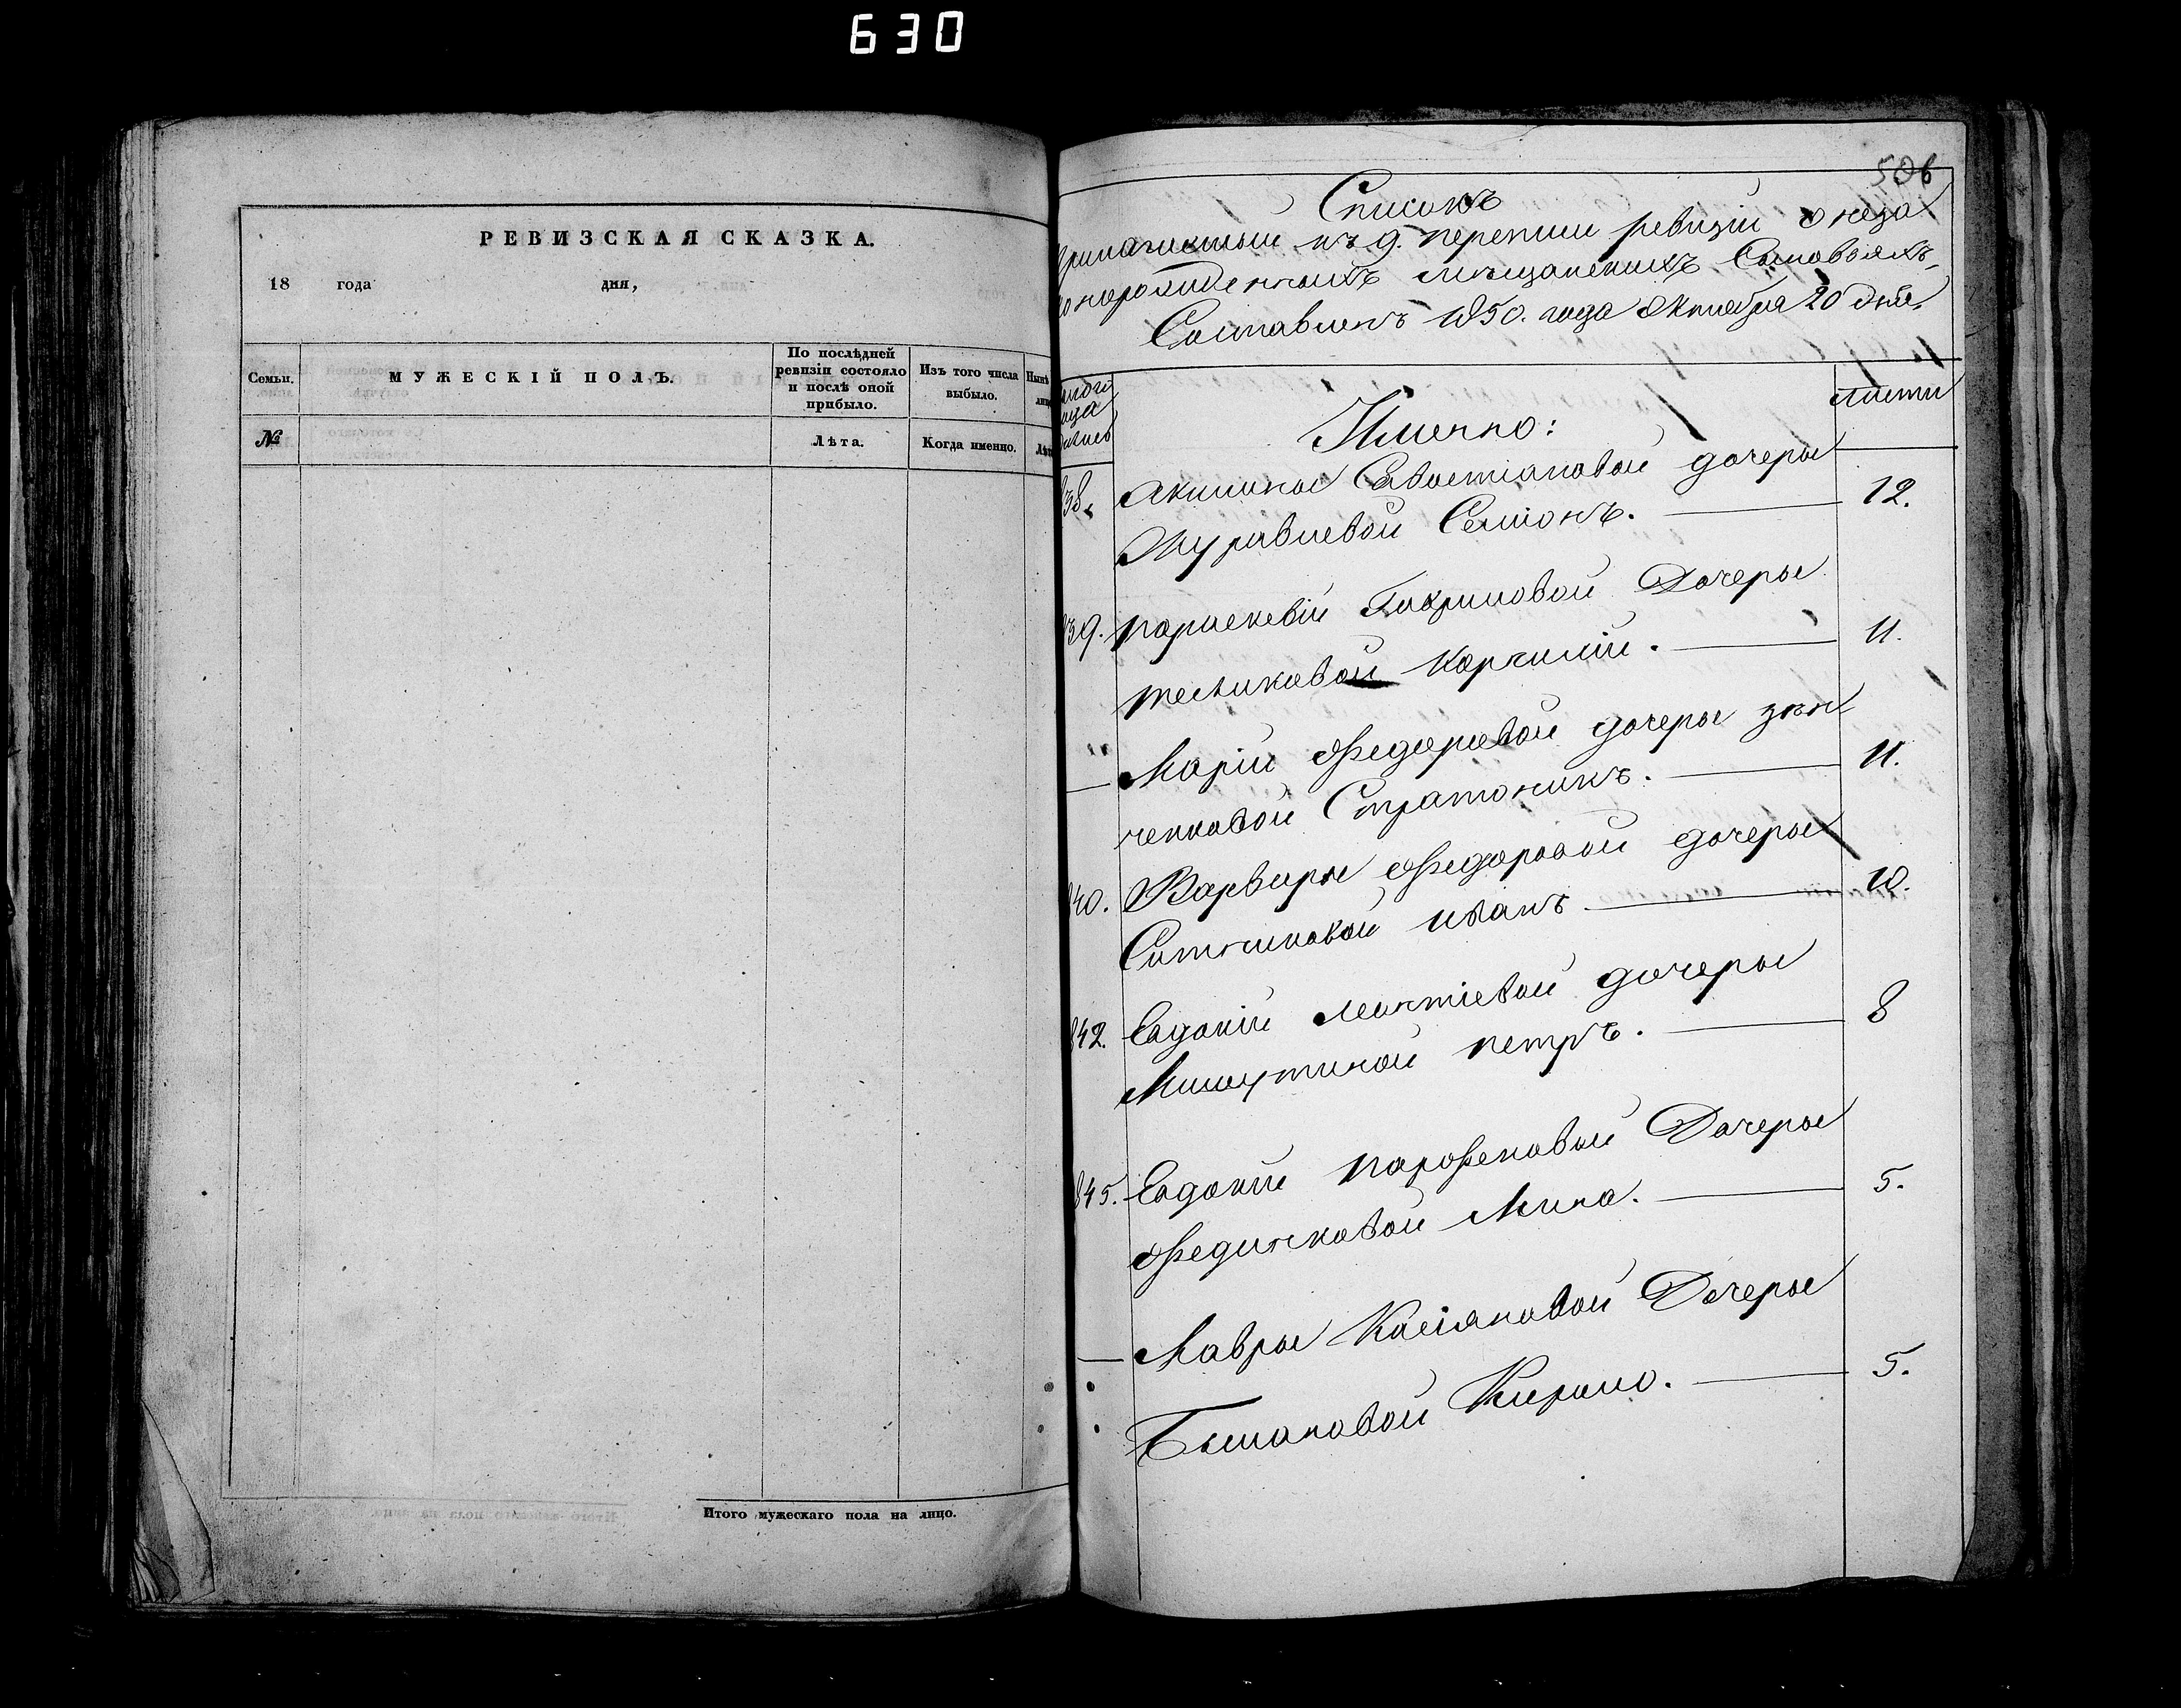 630
РЕВИЗСКАЯ СКАЗКА.
18 года дня,
Семьи.
МУЖЕСКІЙ ПОЛЪ.
По послѣдней
ревизіи состояло
и послѣ оной
прибыло.
Изъ того числа
выбыло.
№
Лѣта.
Когда именно.
Итого мужескаго пола на лицо.
506
Списокъ
къ 9. переписи ревизіи о неза
мещанскихъ Сыновьяхъ
Составленъ 1850. года Октября 20 дня.
Именно:
лѣты
38. Акилины Савостіановой дочеры
Журавлевой Семіонъ. 12.
39. параскевіи Гавриловой Дочеры
Корнилій. 11.
Маріи Федоровой дочеры зен
ченковой Стратоникъ. 11.
40. Варвары Федоровой дочеры
Ситниковой иванъ 10.
842. Евдокіи леонтіевой дочеры
Мишутиной петръ. 8
845. Евдокіи парфеновой Дочеры
Фединковой Мина. 5.
Мавры Касіяновой Дочеры
Кирило. 5.